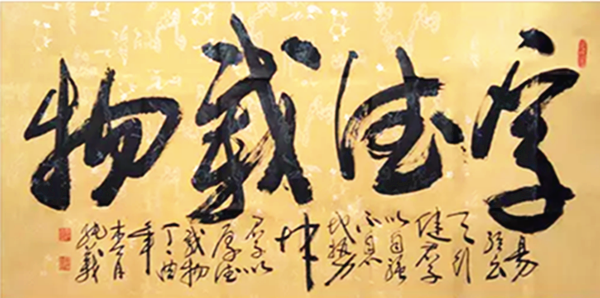 厚德載物
易
经云
天行
健君子
以自強
不息
地势
坤
君子以
厚德
載物
丁酉
年